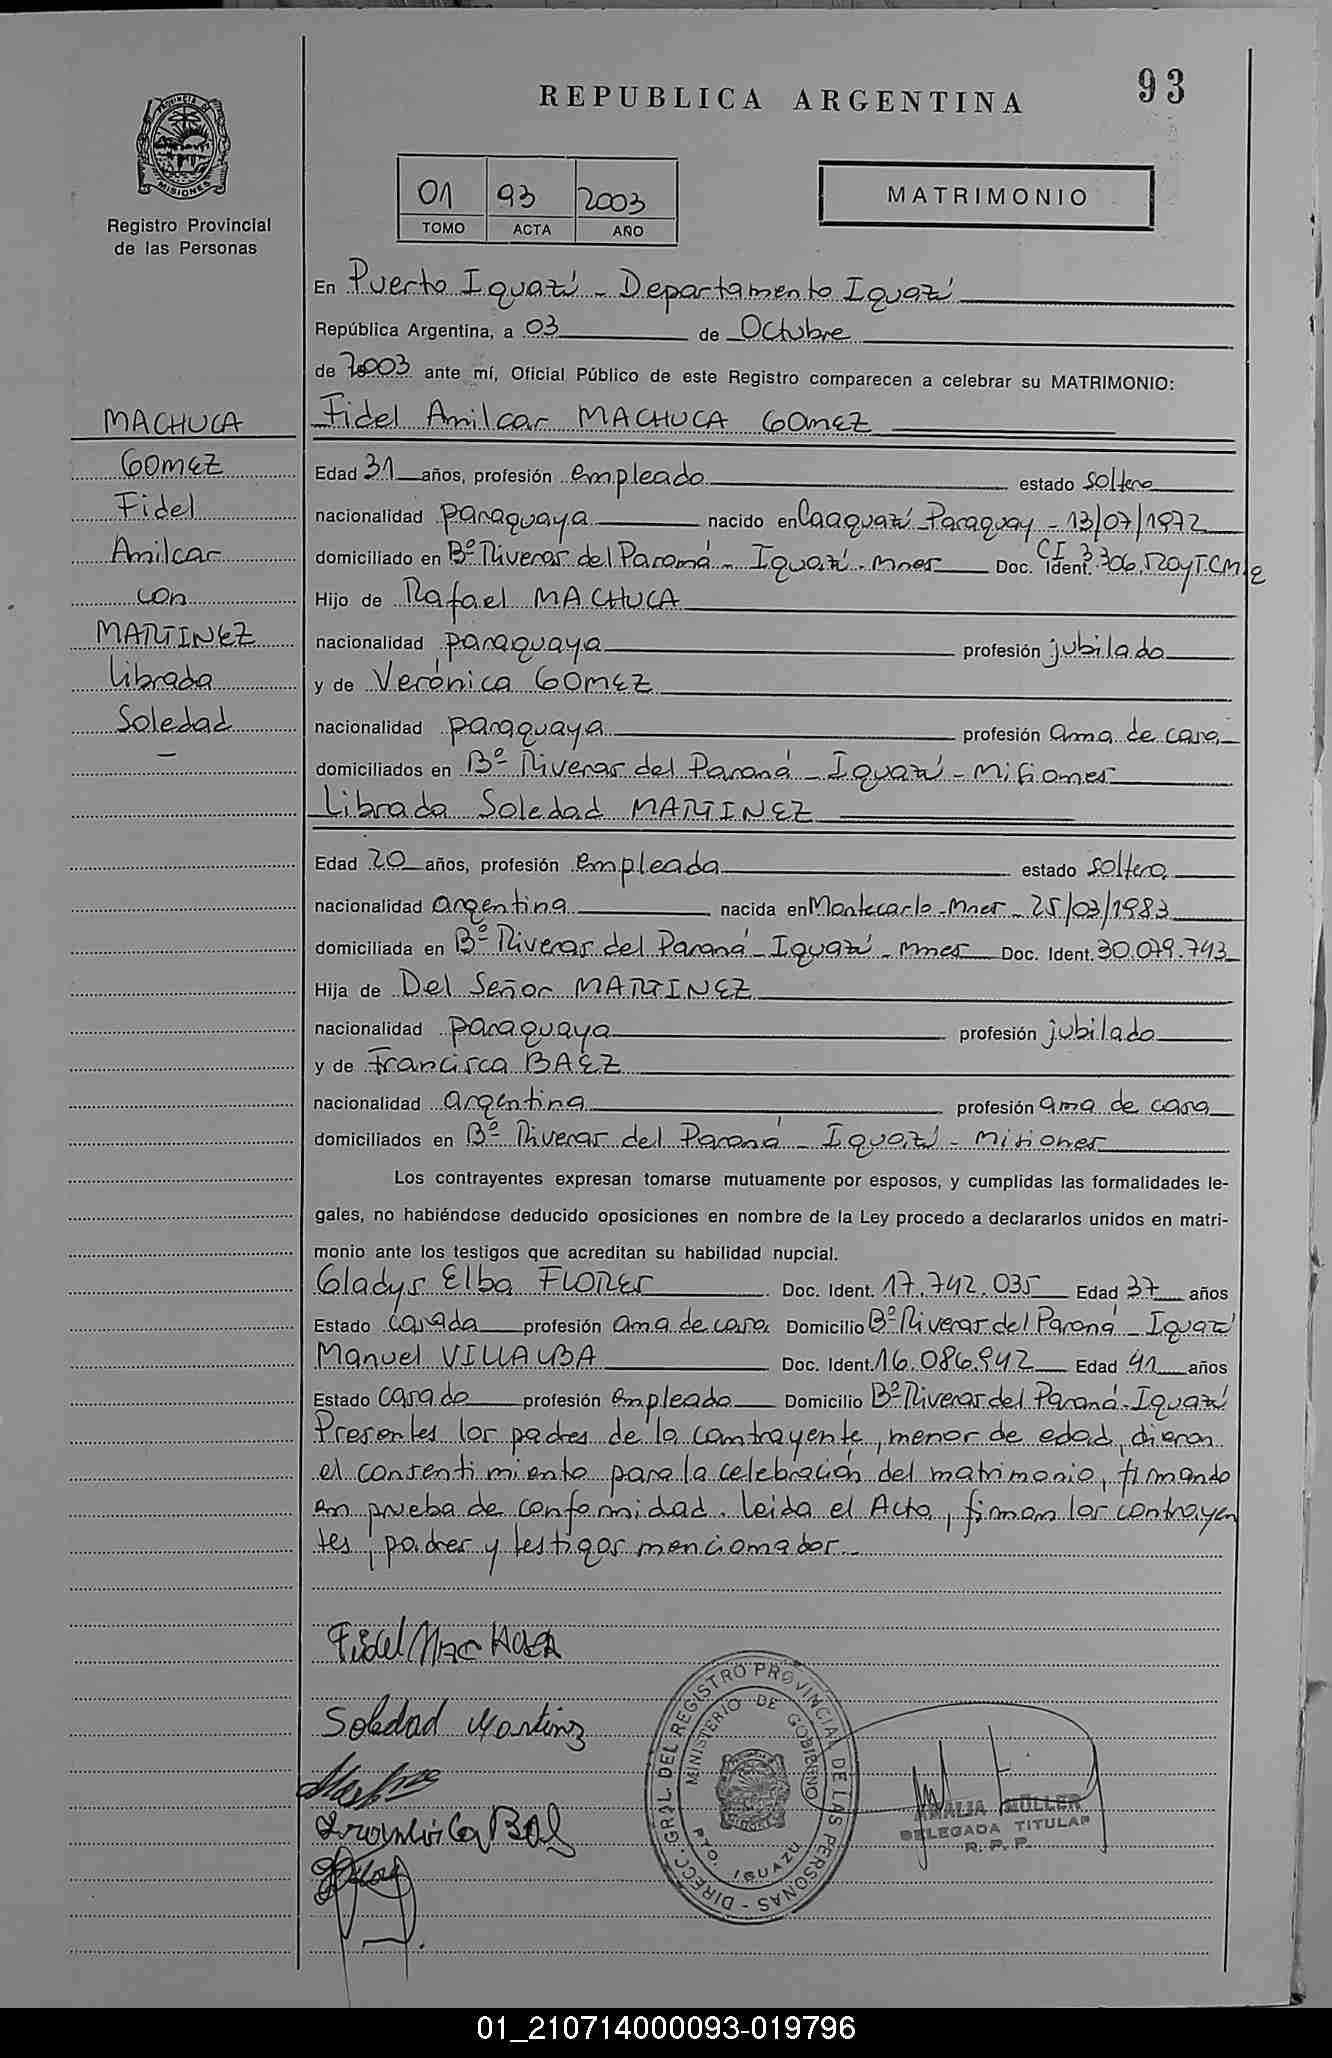 93
REPUBLICA ARGENTINA
PROVINCIA DE
MISIONES
Registro Provincial
de las Personas
01 93 2003
TOMO ACTA AÑO
MATRIMONIO
En Puerto Iguazú - Departamento Iguazú
República Argentina, a 03 de Octubre
de 2003 ante mí, Oficial Público de este Registro comparecen a celebrar su MATRIMONIO:
MACHUCA
GOMEZ
Fidel
Amilcar
con
MARTINEZ
Librada
Soledad
-
Fidel Amilcar MACHUCA GOMEZ
Edad 31 años, profesión empleado estado soltero
nacionalidad paraguaya nacido en Caaguazú-Paraguay - 13/07/1972
domiciliado en Bº Riveras del Paraná - Iguazú - Mnes Doc. Ident. CI 3.306.520
Hijo de Rafael MACHUCA
nacionalidad paraguaya profesión jubilado
y de Verónica GOMEZ
nacionalidad paraguaya profesión ama de casa
domiciliados en Bº Riveras del Paraná - Iguazú - Misiones
Librada Soledad MARTINEZ
Edad 20 años, profesión empleada estado soltera
nacionalidad argentina nacida en Montecarlo-Mnes - 25/03/1983
domiciliada en Bº Riveras del Paraná - Iguazú - Mnes Doc. Ident. 30.079.743
Hija de Del Señor MARTINEZ
nacionalidad paraguaya profesión jubilado
y de Francisca BAEZ
nacionalidad argentina profesión ama de casa
domiciliados en Bº Riveras del Paraná - Iguazú - Misiones
Los contrayentes expresan tomarse mutuamente por esposos, y cumplidas las formalidades le-
gales, no habiéndose deducido oposiciones en nombre de la Ley procedo a declararlos unidos en matri-
monio ante los testigos que acreditan su habilidad nupcial.
Gladys Elba FLORES Doc. Ident. 17.742.035 Edad 37 años
Estado casada profesión ama de casa Domicilio Bº Riveras del Paraná - Iguazú
Manuel VILLALBA Doc. Ident. 16.086.942 Edad 41 años
Estado casado profesión empleado Domicilio Bº Riveras del Paraná - Iguazú
Presentes los padres de la contrayente, menor de edad, dieron
el consentimiento para la celebración del matrimonio, firmando
en prueba de conformidad. Leida el Acta, firman los contrayen
tes, padres y testigos mencionados.-
Fidel Machuca
Soledad Martinez
DIRECC. GRAL. DEL REGISTRO PROVINCIAL DE LAS PERSONAS -
MINISTERIO DE GOBIERNO
PTO. IGUAZU
AMALIA MÜLLER
DELEGADA TITULAR
R. P. P.
01_210714000093-019796